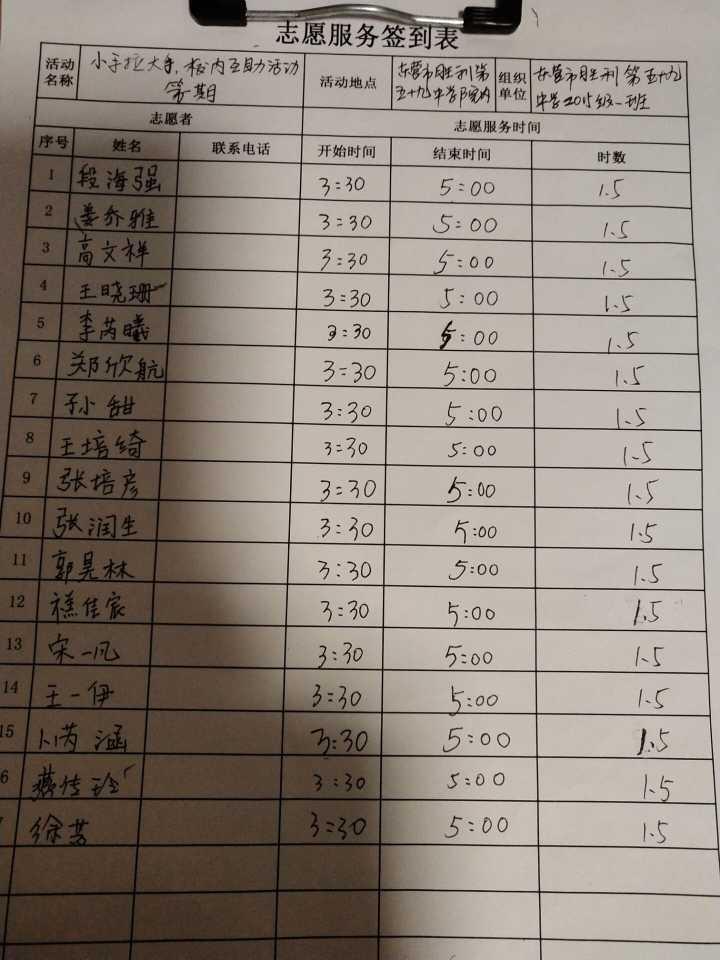 志愿服务签到表
活动名称 小手拉大手，校内互助活动第一期 活动地点 东营市胜利第五十九中学院内 组织单位 东营市胜利第五十九中学2015级一班
志愿者 志愿服务时间
序号 姓名 联系电话 开始时间 结束时间 时数
1 段海强 3:30 5:00 1.5
2 姜乔雅 3:30 5:00 1.5
3 高文祥 3:30 5:00 1.5
4 王晓珊 3:30 5:00 1.5
5 李芮曦 3:30 5:00 1.5
6 郑欣航 3:30 5:00 1.5
7 孙甜 3:30 5:00 1.5
8 王培绮 3:30 5:00 1.5
9 张培彦 3:30 5:00 1.5
10 张润生 3:30 5:00 1.5
11 郭昊林 3:30 5:00 1.5
12 佳宸 3:30 5:00 1.5
13 宋一凡 3:30 5:00 1.5
14 王一伊 3:30 5:00 1.5
15 卜芮涵 3:30 5:00 1.5
6 3:30 5:00 1.5
徐芸 3:30 5:00 1.5